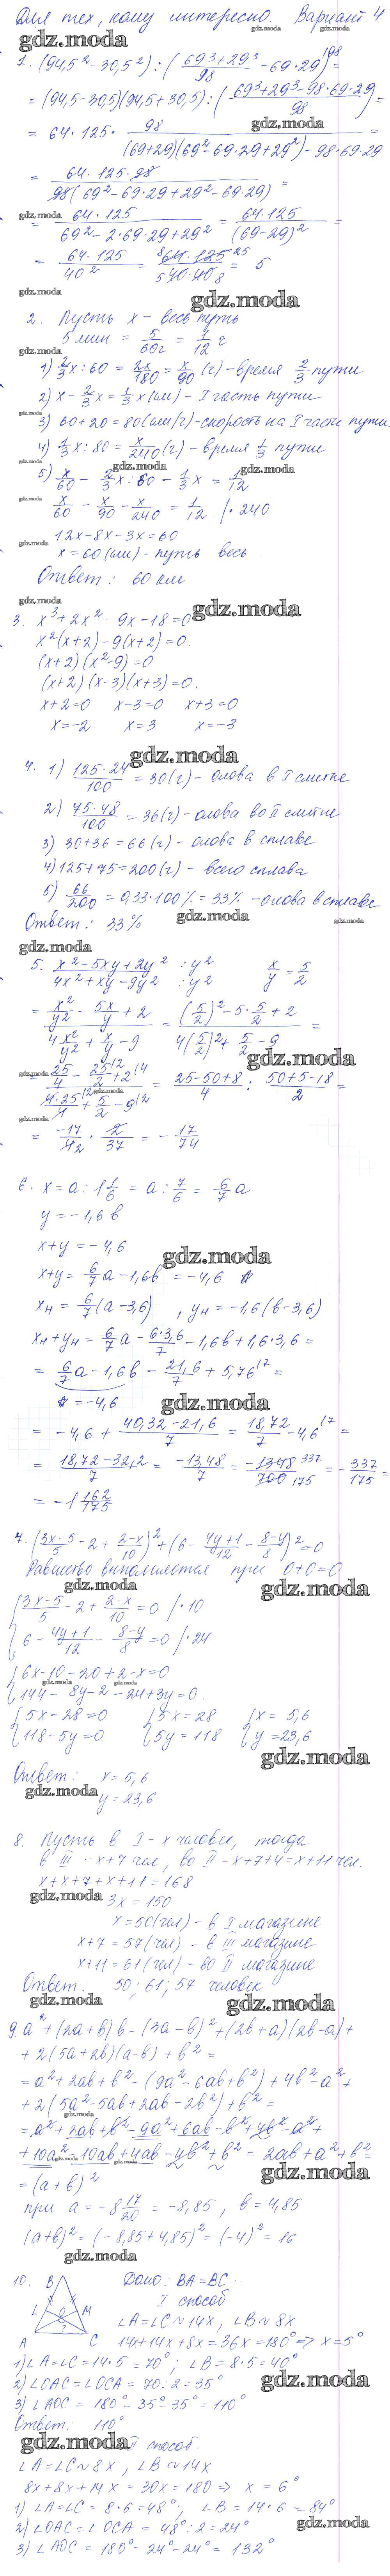 Для тех, кому интересно. Вариант 4
gdz.moda
1. (94,5² - 30,5²) : (69³ + 29³/98 - 69·29)^98 =
= (94,5 - 30,5)(94,5 + 30,5) : (69³ + 29³ - 98·69·29/98) =
gdz.moda
= 64·125 · 98/(69+29)(69² - 69·29 + 29²) - 98·69·29 =
= 64·125·98/98(69² - 69·29 + 29² - 69·29) =
gdz.moda
= 64·125/69² - 2·69·29 + 29² = 64·125/(69-29)² =
gdz.moda
= 64·125/40² = 64·125/40·40 = 5
gdz.moda
gdz.moda
2. Пусть x - весь путь
5 мин = 5/60 ч = 1/12 ч
gdz.moda
1) 2/3 x : 60 = 2x/180 = x/90 (ч) - время 2/3 пути
2) x - 2/3 x = 1/3 x (км) - I часть пути
3) 60 + 20 = 80 (км/ч) - скорость на I части пути
4) 1/3 x : 80 = x/240 (ч) - время 1/3 пути
gdz.moda
gdz.moda
5) x/60 - 2/3 x : 60 - 1/3 x = 1/12
x/60 - x/90 - x/240 = 1/12 |·240
gdz.moda
12x - 8x - 3x = 60
x = 60 (км) - путь весь
Ответ: 60 км
gdz.moda
3. x³ + 2x² - 9x - 18 = 0
x²(x+2) - 9(x+2) = 0.
(x+2)(x²-9) = 0
(x+2)(x-3)(x+3) = 0.
x+2=0 x-3=0 x+3=0
x=-2 x=3 x=-3
gdz.moda
4. 1) 125·24/100 = 30 (г) - олова в I слитке
2) 75·48/100 = 36 (г) - олова во II слитке
3) 30 + 36 = 66 (г) - олова в сплаве
4) 125 + 75 = 200 (г) - всего сплава
5) 66/200 = 0,33·100% = 33% - олова в сплаве
gdz.moda
Ответ: 33%
gdz.moda
gdz.moda
5. x² - 5xy + 2y² : y²/4x² + xy - 9y² : y² x/y = 5/2
= x²/y² - 5x/y + 2/4 x²/y² + x/y - 9 = (5/2)² - 5·5/2 + 2/4(5/2)² + 5/2 - 9 =
gdz.moda
gdz.moda
= 25/4 - 25/2 + 2/4·25/4 + 5/2 - 9 = 25 - 50 + 8/4 : 50 + 5 - 18/2 =
gdz.moda
gdz.moda
= -17/4 · 2/37 = -17/74
6. x = a : 1 1/6 = a : 7/6 = 6/7 a
y = -1,6b
x + y = -4,6
gdz.moda
x + y = 6/7 a - 1,6b = -4,6
xн = 6/7 (a - 3,6) , yн = -1,6(b - 3,6)
xн + yн = 6/7 a - 6·3,6/7 - 1,6b + 1,6·3,6 =
= 6/7 a - 1,6b - 21,6/7 + 5,76 =
= -4,6
gdz.moda
= -4,6 + 40,32 - 21,6/7 = 18,72/7 - 4,6 =
= 18,72 - 32,2/7 = -13,48/7 = -1348/700 = -337/175 =
= -1 162/175
7. (3x-5/5 - 2 + 2-x/10)² + (6 - 4y+1/12 - 8-y/8)² = 0
Равенство выполняется при 0+0=0
gdz.moda
gdz.moda
3x-5/5 - 2 + 2-x/10 = 0 |·10
6 - 4y+1/12 - 8-y/8 = 0 |·24
6x - 10 - 20 + 2 - x = 0
gdz.moda
gdz.moda
144 - 8y - 2 - 24 + 3y = 0.
5x - 28 = 0 5x = 28 x = 5,6
118 - 5y = 0 5y = 118 y = 23,6
gdz.moda
Ответ: x = 5,6
gdz.moda
y = 23,6
8. Пусть в I - x человек, тогда
в III - x+7 чел, во II - x+7+4 = x+11 чел.
x + x + 7 + x + 11 = 168
gdz.moda
3x = 150
x = 50 (чел) - в I магазине
x+7 = 57 (чел) - в III магазине
x+11 = 61 (чел) - во II магазине
Ответ. 50; 61; 57 человек
gdz.moda
gdz.moda
9. a² + (2a+b)b - (3a-b)² + (2b+a)(2b-a) +
+ 2(5a+2b)(a-b) + b² =
= a² + 2ab + b² - (9a² - 6ab + b²) + 4b² - a² +
+ 2(5a² - 5ab + 2ab - 2b²) + b² =
gdz.moda
= a² + 2ab + b² - 9a² + 6ab - b² + 4b² - a² +
+ 10a² - 10ab + 4ab - 4b² + b² = 2ab + a² + b² =
gdz.moda
gdz.moda
gdz.moda
= (a+b)²
при a = -8 17/20 = -8,85, b = 4,85
(a+b)² = (-8,85 + 4,85)² = (-4)² = 16
gdz.moda
10. B Дано: BA = BC.
I способ
L M ∠A = ∠C ~ 14x, ∠B ~ 8x
A C 14x + 14x + 8x = 36x = 180° => x = 5°
1) ∠A = ∠C = 14·5 = 70°; ∠B = 8·5 = 40°
gdz.moda
2) ∠OAC = ∠OCA = 70:2 = 35°
3) ∠AOC = 180° - 35° - 35° = 110°
Ответ: 110°
gdz.moda
II способ.
∠A = ∠C ~ 8x, ∠B ~ 14x
8x + 8x + 14x = 30x = 180 => x = 6°
1) ∠A = ∠C = 8·6 = 48°; ∠B = 14·6 = 84°
2) ∠OAC = ∠OCA = 48°:2 = 24°
gdz.moda
3) ∠AOC = 180° - 24° - 24° = 132°